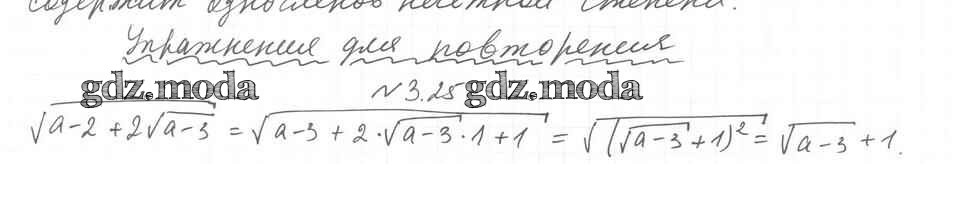 содержит одночленов нечётной степени.
Упражнения для повторения
gdz.moda gdz.moda
№3.25
√(a-2+2√(a-3)) = √(a-3+2·√(a-3)·1+1) = √((√(a-3)+1)²) = √(a-3)+1.